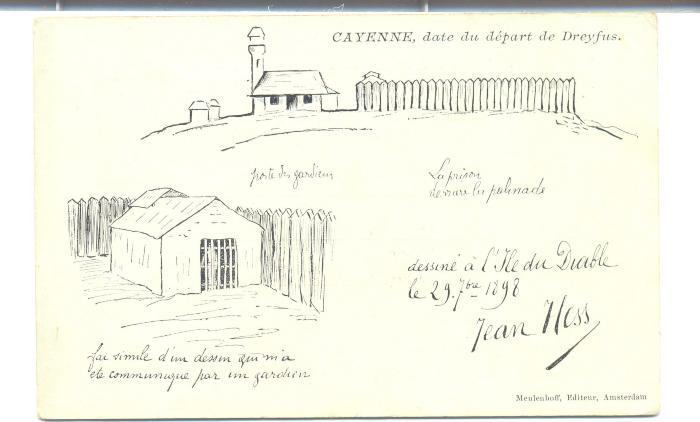 CAYENNE, date du départ de Dreyfus.
poste des gardiens
La prison
derrière la palissade
dessiné à l'Ile du Diable
le 29. 7bre 1898
Jean Hess
fac simile d'un dessin qui m'a
été communiqué par un gardien
Meulenhoff, Editeur, Amsterdam